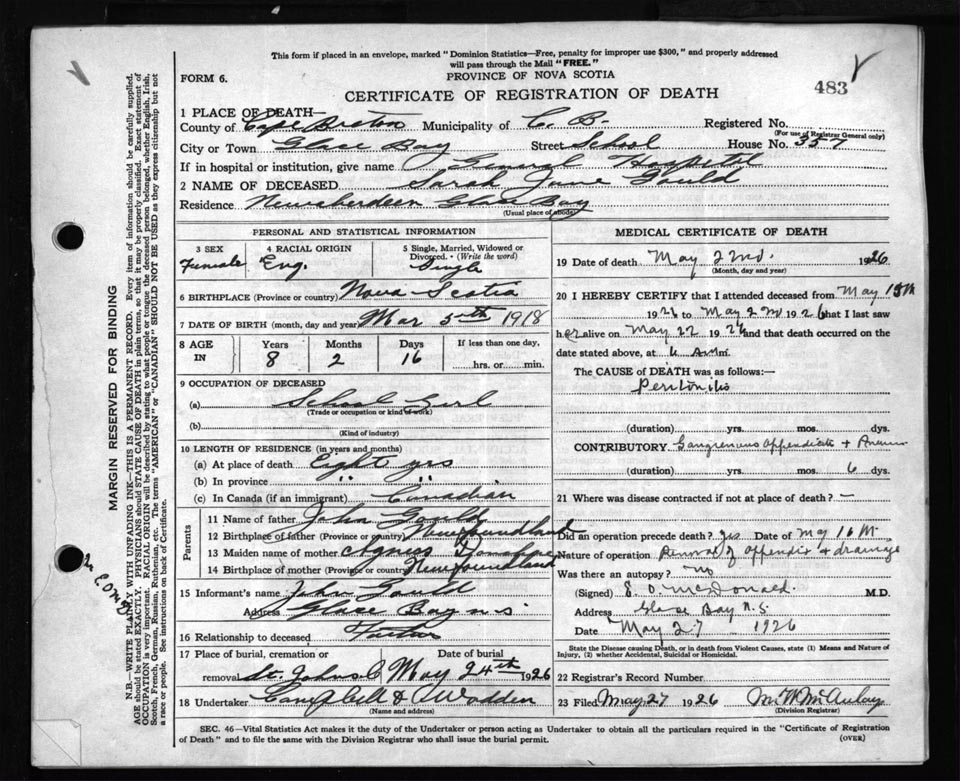 This form if placed in an envelope, marked "Dominion Statistics—Free, penalty for improper use $300," and properly addressed
will pass through the Mail "FREE."
FORM 6. PROVINCE OF NOVA SCOTIA
483
CERTIFICATE OF REGISTRATION OF DEATH
1 PLACE OF DEATH—
County of Cape Breton Municipality of C. B. Registered No.
(For use of Registrar General only)
City or Town Glace Bay Street School House No. 357
If in hospital or institution, give name General Hospital
2 NAME OF DECEASED Sarah Jane Gould
Residence Newaberdeen Glace Bay
(Usual place of abode)
PERSONAL AND STATISTICAL INFORMATION
3 SEX 4 RACIAL ORIGIN 5 Single, Married, Widowed or Divorced. (Write the word)
Female Eng. Single
6 BIRTHPLACE (Province or country) Nova Scotia
7 DATE OF BIRTH (month, day and year) Mar 5th 1918
8 AGE IN Years Months Days If less than one day,
8 2 16 hrs. or min.
9 OCCUPATION OF DECEASED
(a) School Girl
(Trade or occupation or kind of work)
(b)
(Kind of industry)
10 LENGTH OF RESIDENCE (in years and months)
(a) At place of death Eight yrs
(b) In province " "
(c) In Canada (if an immigrant) Canadian
Parents
11 Name of father John Gould
12 Birthplace of father (Province or country) Newfoundland
13 Maiden name of mother Agness
14 Birthplace of mother (Province or country) Newfoundland
15 Informant's name John Gould
Address Glace Bay N S
16 Relationship to deceased Father
17 Place of burial, cremation or removal Date of burial
St. Johns C May 24th 1926
18 Undertaker Campbell & Wadden
(Name and address)
MEDICAL CERTIFICATE OF DEATH
19 Date of death May 22nd. 1926
(Month, day and year)
20 I HEREBY CERTIFY that I attended deceased from May 15th
1926 to May 22nd 1926 that I last saw
her alive on May 22 1926 and that death occurred on
date stated above, at 6 m.
The CAUSE of DEATH was as follows:—
Peritonitis
(duration) yrs. mos. dys.
CONTRIBUTORY Gangrenous Appendicitis +
(duration) yrs. mos. 6 dys.
21 Where was disease contracted if not at place of death? —
Did an operation precede death? yes Date of My 16th
Nature of operation Removal of appendix & drainage
Was there an autopsy? no
(Signed) S. O. McDonald. M.D.
Address Glace Bay N.S.
Date May 27 1926
State the Disease causing Death, or in death from Violent Causes, state (1) Means and Nature of
Injury, (2) whether Accidental, Suicidal or Homicidal.
22 Registrar's Record Number
23 Filed May 27 1926 M W McAulay
(Division Registrar)
SEC. 46—Vital Statistics Act makes it the duty of the Undertaker or person acting as Undertaker to obtain all the particulars required in the "Certificate of Registration
of Death" and to file the same with the Division Registrar who shall issue the burial permit. (OVER)
MARGIN RESERVED FOR BINDING
N.B.—WRITE PLAINLY WITH UNFADING INK—THIS IS A PERMANENT RECORD. Every item of information should be carefully supplied.
AGE should be stated EXACTLY. PHYSICIANS should STATE CAUSE OF DEATH in plain terms, so that it may be properly classified. Exact statement of
OCCUPATION is very important. RACIAL ORIGIN will be described by stating to what people or tongue the deceased person belonged, whether English, Irish,
Scotch, French, German, Russian, Ruthenian, etc. The terms "AMERICAN" or "CANADIAN" SHOULD NOT BE USED as they express citizenship but not
a race or people. See instructions on back of Certificate.